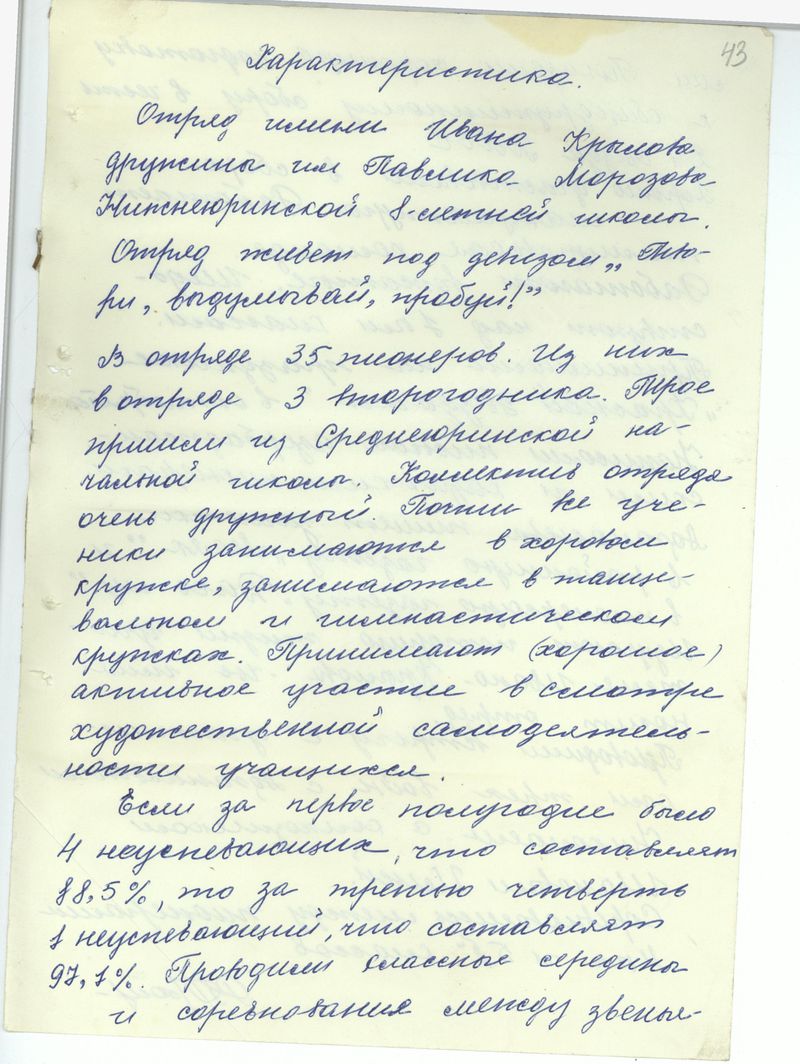 43
Характеристика.
Отряд имени Ивана Крылова
дружины им Павлика Морозова
Нижнеюринской 8-летней школы.
Отряд живет под девизом „Тво-
ри, выдумывай, пробуй!"
В отряде 35 пионеров. Из них
в отряде 3 второгодника. Трое
пришли из Среднеюринской на-
чальной школы. Коллектив отряда
очень дружный Почти все уче-
ники занимаются в хоровом
кружке, занимаются в танце-
вальном и гимнастическом
кружках. Принимают (хорошое)
активное участие в смотре
художественной самодеятель-
ности учащихся.
Если за первое полугодие было
4 неуспевающих, что составляет
88,5%, то за третью четверть
1 неуспевающий, что составляет
97,1%. Проводили классные середины
и соревнования между звенья-